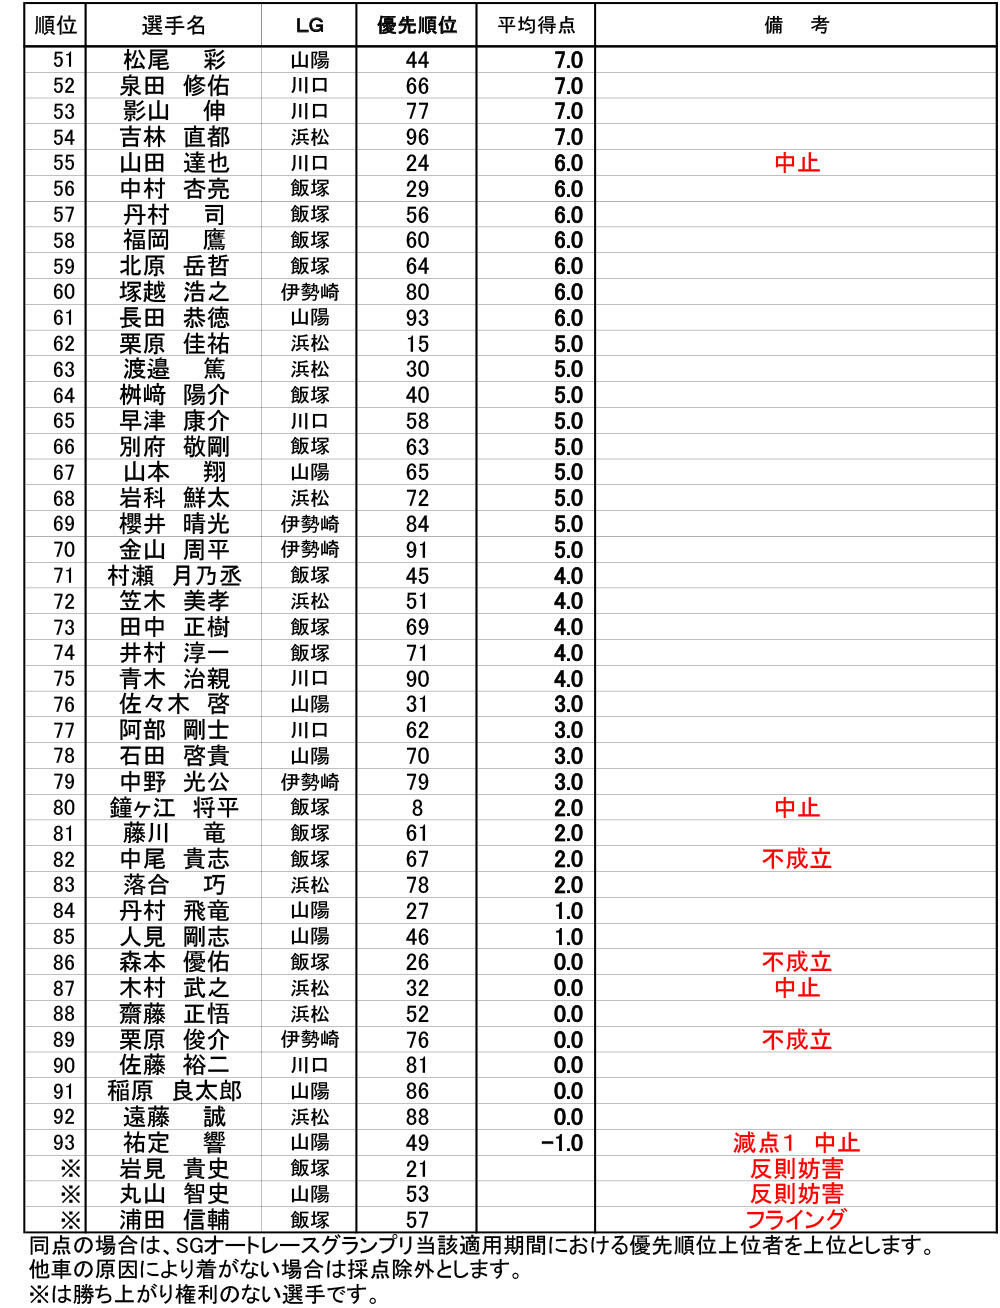 順位 選手名 LG 優先順位 平均得点 備 考
51 松尾 彩 山陽 44 7.0
52 泉田 修佑 川口 66 7.0
53 影山 伸 川口 77 7.0
54 吉林 直都 浜松 96 7.0
55 山田 達也 川口 24 6.0 中止
56 中村 杏亮 飯塚 29 6.0
57 丹村 司 飯塚 56 6.0
58 福岡 鷹 飯塚 60 6.0
59 北原 岳哲 飯塚 64 6.0
60 塚越 浩之 伊勢崎 80 6.0
61 長田 恭徳 山陽 93 6.0
62 栗原 佳祐 浜松 15 5.0
63 渡邉 篤 浜松 30 5.0
64 桝崎 陽介 飯塚 40 5.0
65 早津 康介 川口 58 5.0
66 別府 敬剛 飯塚 63 5.0
67 山本 翔 山陽 65 5.0
68 岩科 鮮太 浜松 72 5.0
69 櫻井 晴光 伊勢崎 84 5.0
70 金山 周平 伊勢崎 91 5.0
71 村瀬 月乃丞 飯塚 45 4.0
72 笠木 美孝 浜松 51 4.0
73 田中 正樹 飯塚 69 4.0
74 井村 淳一 飯塚 71 4.0
75 青木 治親 川口 90 4.0
76 佐々木 啓 山陽 31 3.0
77 阿部 剛士 川口 62 3.0
78 石田 啓貴 山陽 70 3.0
79 中野 光公 伊勢崎 79 3.0
80 鐘ヶ江 将平 飯塚 8 2.0 中止
81 藤川 竜 飯塚 61 2.0
82 中尾 貴志 飯塚 67 2.0 不成立
83 落合 巧 浜松 78 2.0
84 丹村 飛竜 山陽 27 1.0
85 人見 剛志 山陽 46 1.0
86 森本 優佑 飯塚 26 0.0 不成立
87 木村 武之 浜松 32 0.0 中止
88 齋藤 正悟 浜松 52 0.0
89 栗原 俊介 伊勢崎 76 0.0 不成立
90 佐藤 裕二 川口 81 0.0
91 稲原 良太郎 山陽 86 0.0
92 遠藤 誠 浜松 88 0.0
93 祐定 響 山陽 49 -1.0 減点1 中止
※ 岩見 貴史 飯塚 21 反則妨害
※ 丸山 智史 山陽 53 反則妨害
※ 浦田 信輔 飯塚 57 フライング
同点の場合は、SGオートレースグランプリ当該適用期間における優先順位上位者を上位とします。
他車の原因により着がない場合は採点除外とします。
※は勝ち上がり権利のない選手です。